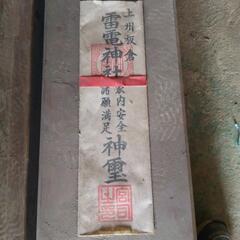 上州板倉
雷電神社
家内安全
諸願満足
神璽